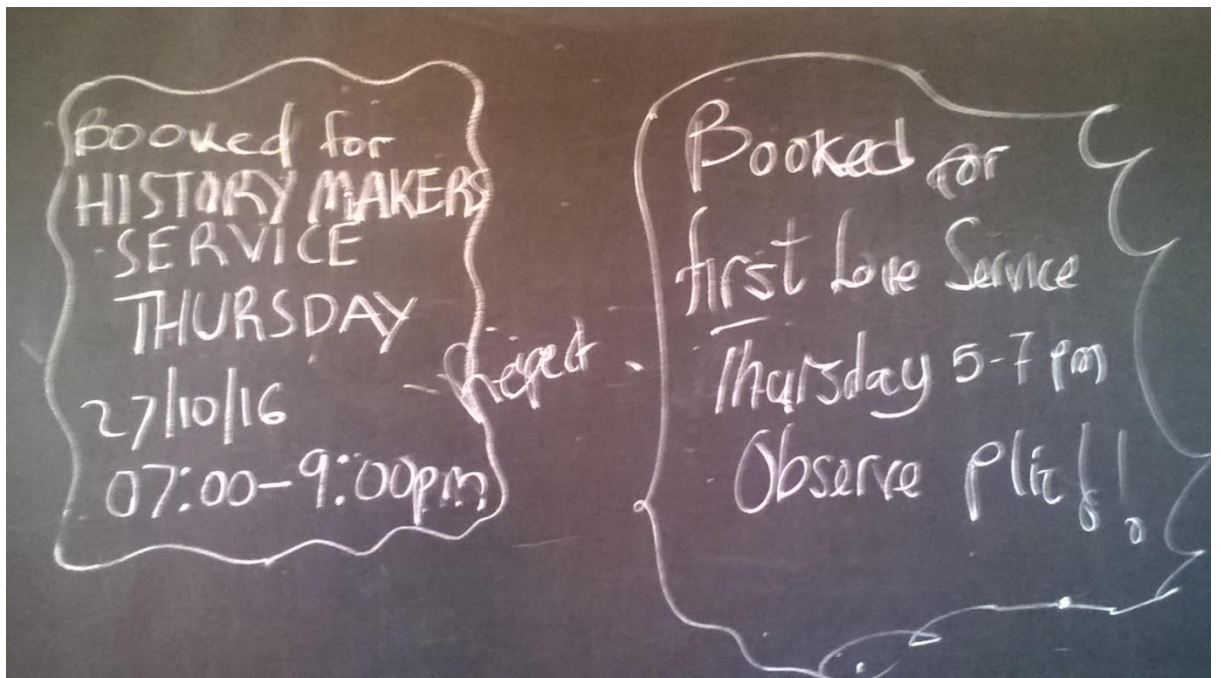 Booked for
HISTORY MAKERS
SERVICE
THURSDAY
27/10/16
07:00-9:00pm
Booked for
first Love Service
Thursday 5-7 pm
Observe